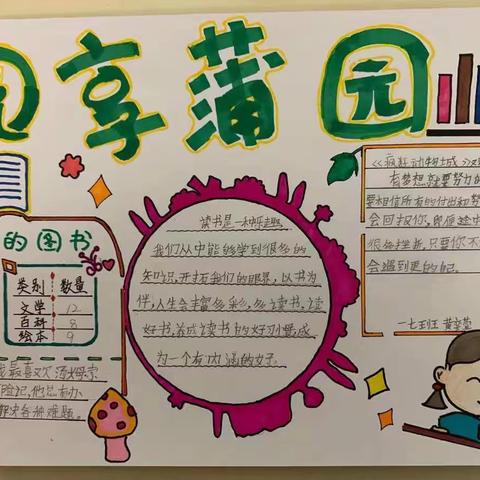 享蒲园
的图书
类别 数量
文学 12
百科 8
绘本 9
最喜欢汤姆索
险记,他总有办
解决各种难题。
读书是一种乐趣
我们从中能够学到很多的
知识,开拓我们的眼界,以书为
伴,人生会丰富多彩,多读书、读
好书,养成读书的好习惯,成
为一个有内涵的女子
《疯狂动物城》
有梦想就要努力
要相信所有的付出和努
会回报你,即便途中
很多挫折,只要你不
会遇到更好的自己。
一七王班